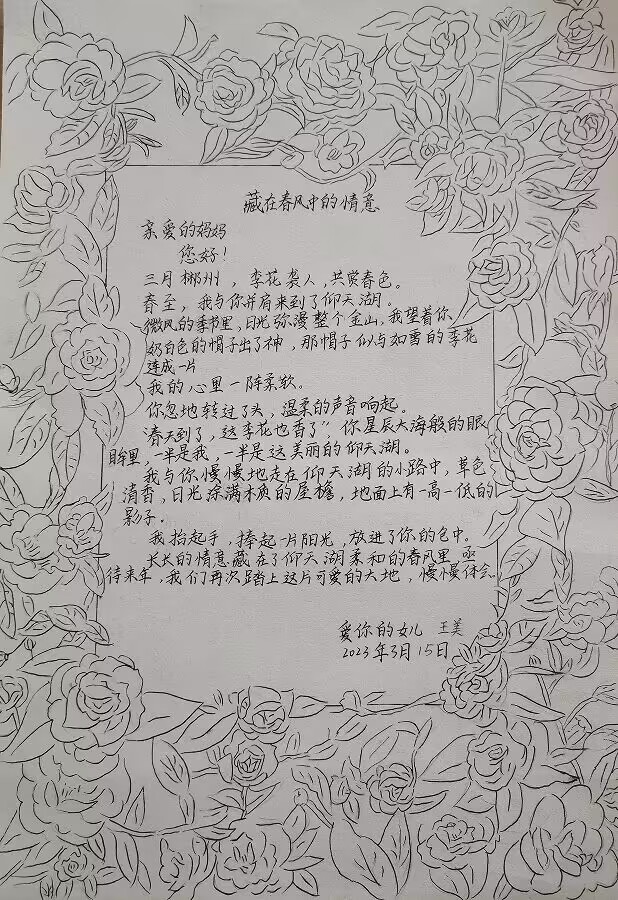 藏在春风中的情意
亲爱的妈妈
您好！
三月郴州，李花袭人，共赏春色。
春至，我与你并肩来到了仰天湖。
微风的季节里，日光弥漫整个金山，我望着你、
奶白色的帽子出了神，那帽子似与如雪的李花
连成一片
我的心里一阵柔软。
你忽地转过了头，温柔的声音响起。
春天到了，这李花也香了”你星辰大海般的眼
眸里，一半是我，一半是这美丽的仰天湖。
我与你慢慢地走在仰天湖的小路中，草色
清香，日光涂满木质的屋檐，地面上有一高一低的
影子。
我抬起手，捧起一片阳光，放进了你的包中。
长长的情意藏在了仰天湖柔和的春风里
待来年，我们再次踏上这片可爱的大地，慢慢体会
爱你的女儿 王美
2023年3月15日